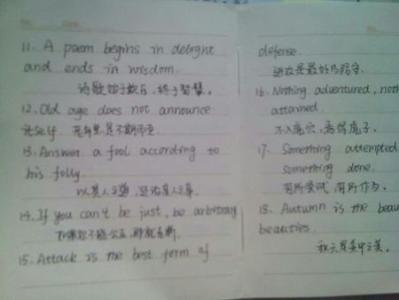 11. A poem begins in delight
and ends in wisdom.
诗歌始于欢乐，终于智慧。
12. Old age does not announce
itself.
13. Answer a fool according to
his folly.
以其人之道，还治其人之身。
14. If you can't be just, be arbitrary
15. Attack is the best form of
defense.
进攻是最好的防守。
16. Nothing adventured, noth
attained.
不入虎穴，焉得虎子。
17. Something attempted
something done.
有所尝试，有所作为。
18. Autumn is the beau
beauties.
秋天是美中之美。